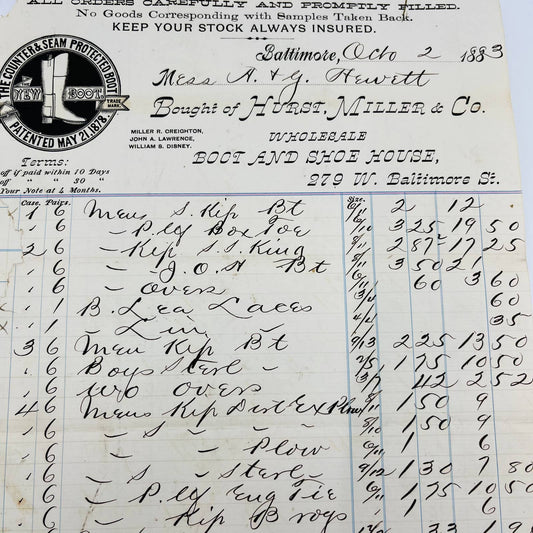 ALL ORDERS CAREFULLY AND PROMPTLY FILLED.
No Goods Corresponding with Samples Taken Back.
KEEP YOUR STOCK ALWAYS INSURED.
THE COUNTER & SEAM PROTECTED BOOT
NEW BOOT
TRADE MARK
PATENTED MAY 21, 1878.
Baltimore, Octo 2 1883
Mess A. & G. Hewett
Bought of HURST, MILLER & Co.
MILLER R. CREIGHTON,
JOHN A. LAWRENCE,
WILLIAM S. DISNEY.
WHOLESALE
BOOT AND SHOE HOUSE,
279 W. Baltimore St.
Terms:
off if paid within 10 Days
off " " 30 "
Your Note at 4 Months.
Case. Pairs. Size.
1 6 Mens S. Kip Bt 6/11 2 12
" 6 - P. leg Box Toe 6/10 3 25 19 50
2 6 - Kip S. S. King 2 87 2 17 25
" 6 - J. O. H Bt 6/11 3 50 21
" 6 - overs 6/11 60 3 60
" 1 B. Lea Laces 3/4 60
" 1 - 4/4 35
3 6 Men Kip Bt 9/13 2 25 13 50
" 6 Boys Sterl - 2/5 1 75 10 50
" 6 overs 3/7 42 2 52
4 6 Mens Kip Ex Plow 1 50 9
" 6 - S - - 1 50 9
" 6 - - Plow 6/11 1 6
" 6 - S - Sterl - 9/12 1 30 7 80
" 6 - P. leg Eng Tie 6/11 1 75 10 50
" 6 - Kip Brogs 1 6
33 19